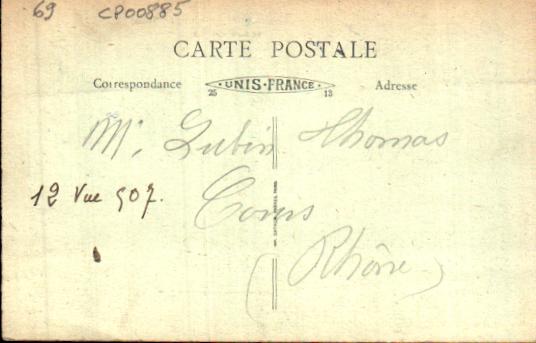 69 CP00885
CARTE POSTALE
Correspondance UNIS-FRANCE Adresse
25 13
Mr. Lubin Thomas
12 Vue 507.
Cours
(Rhône)